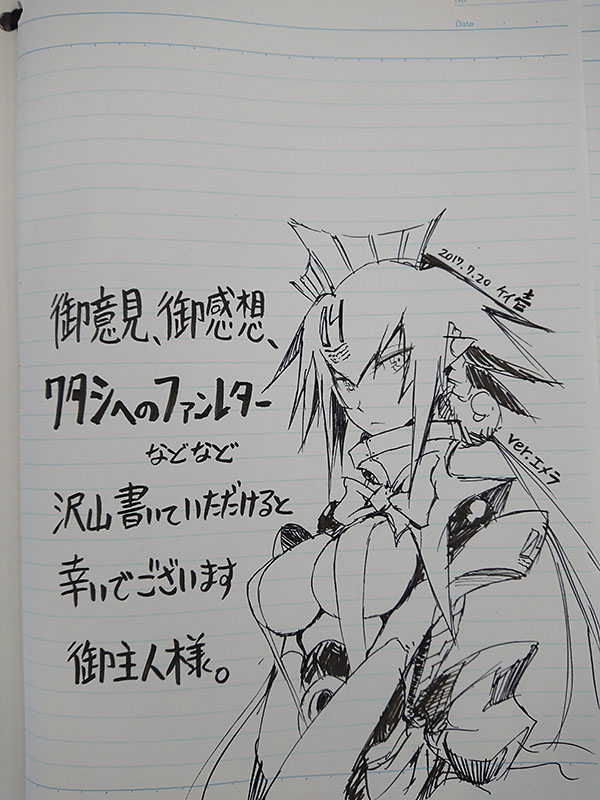 No.
Date
2017.7.20 ケイ壱
御意見、御感想、
ワタシへのファンレター
などなど
ver.エメラ
沢山書いていただけると
幸いでございます
御主人様。